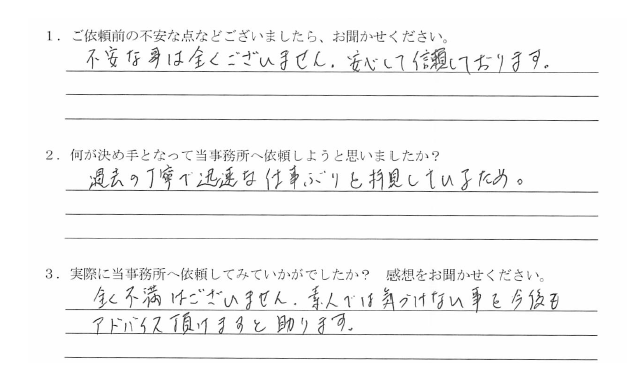 1．ご依頼前の不安な点などございましたら、お聞かせください。
不安な事は全くございません。安心して信頼しております。
2．何が決め手となって当事務所へ依頼しようと思いましたか？
過去の丁寧で迅速な仕事ぶりを拝見しているため。
3．実際に当事務所へ依頼してみていかがでしたか？　感想をお聞かせください。
全く不満はございません。素人では気づけない事を今後も
アドバイス頂けますと助ります。